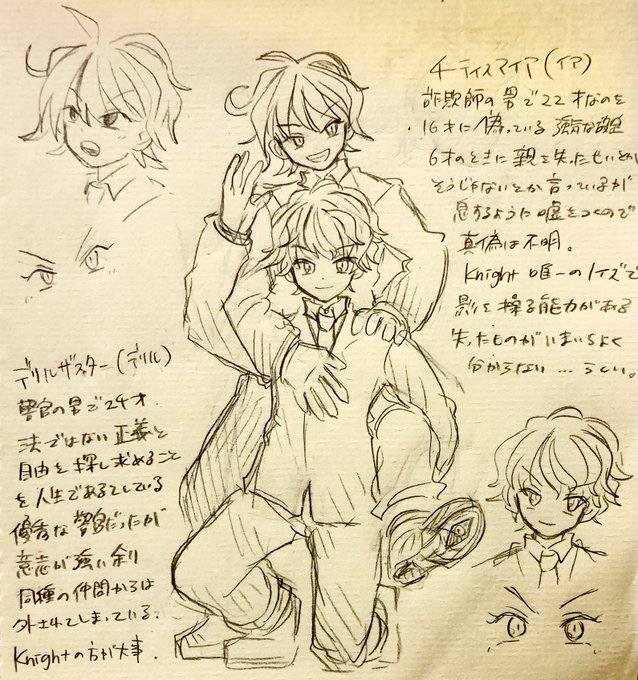 チーティスマイア(イア)
詐欺師の男で22才なのを
16才に偽っている
6才のときに親を失ったせいとか
そうじゃないとか言っているが
息するように嘘をつくので
真偽は不明。
Knight 唯一のノイズで
影を操る能力がある
失ったものがいまいちよく
分からない…らしい。
デリルザスター(デリル)
警官の男で24才.
法ではない正義と
自由を探し求めること
を人生であてしている
優秀な警官だったが
意志が強い余り
同種の仲間からは
外されてしまっている.
Knightの方が大事.